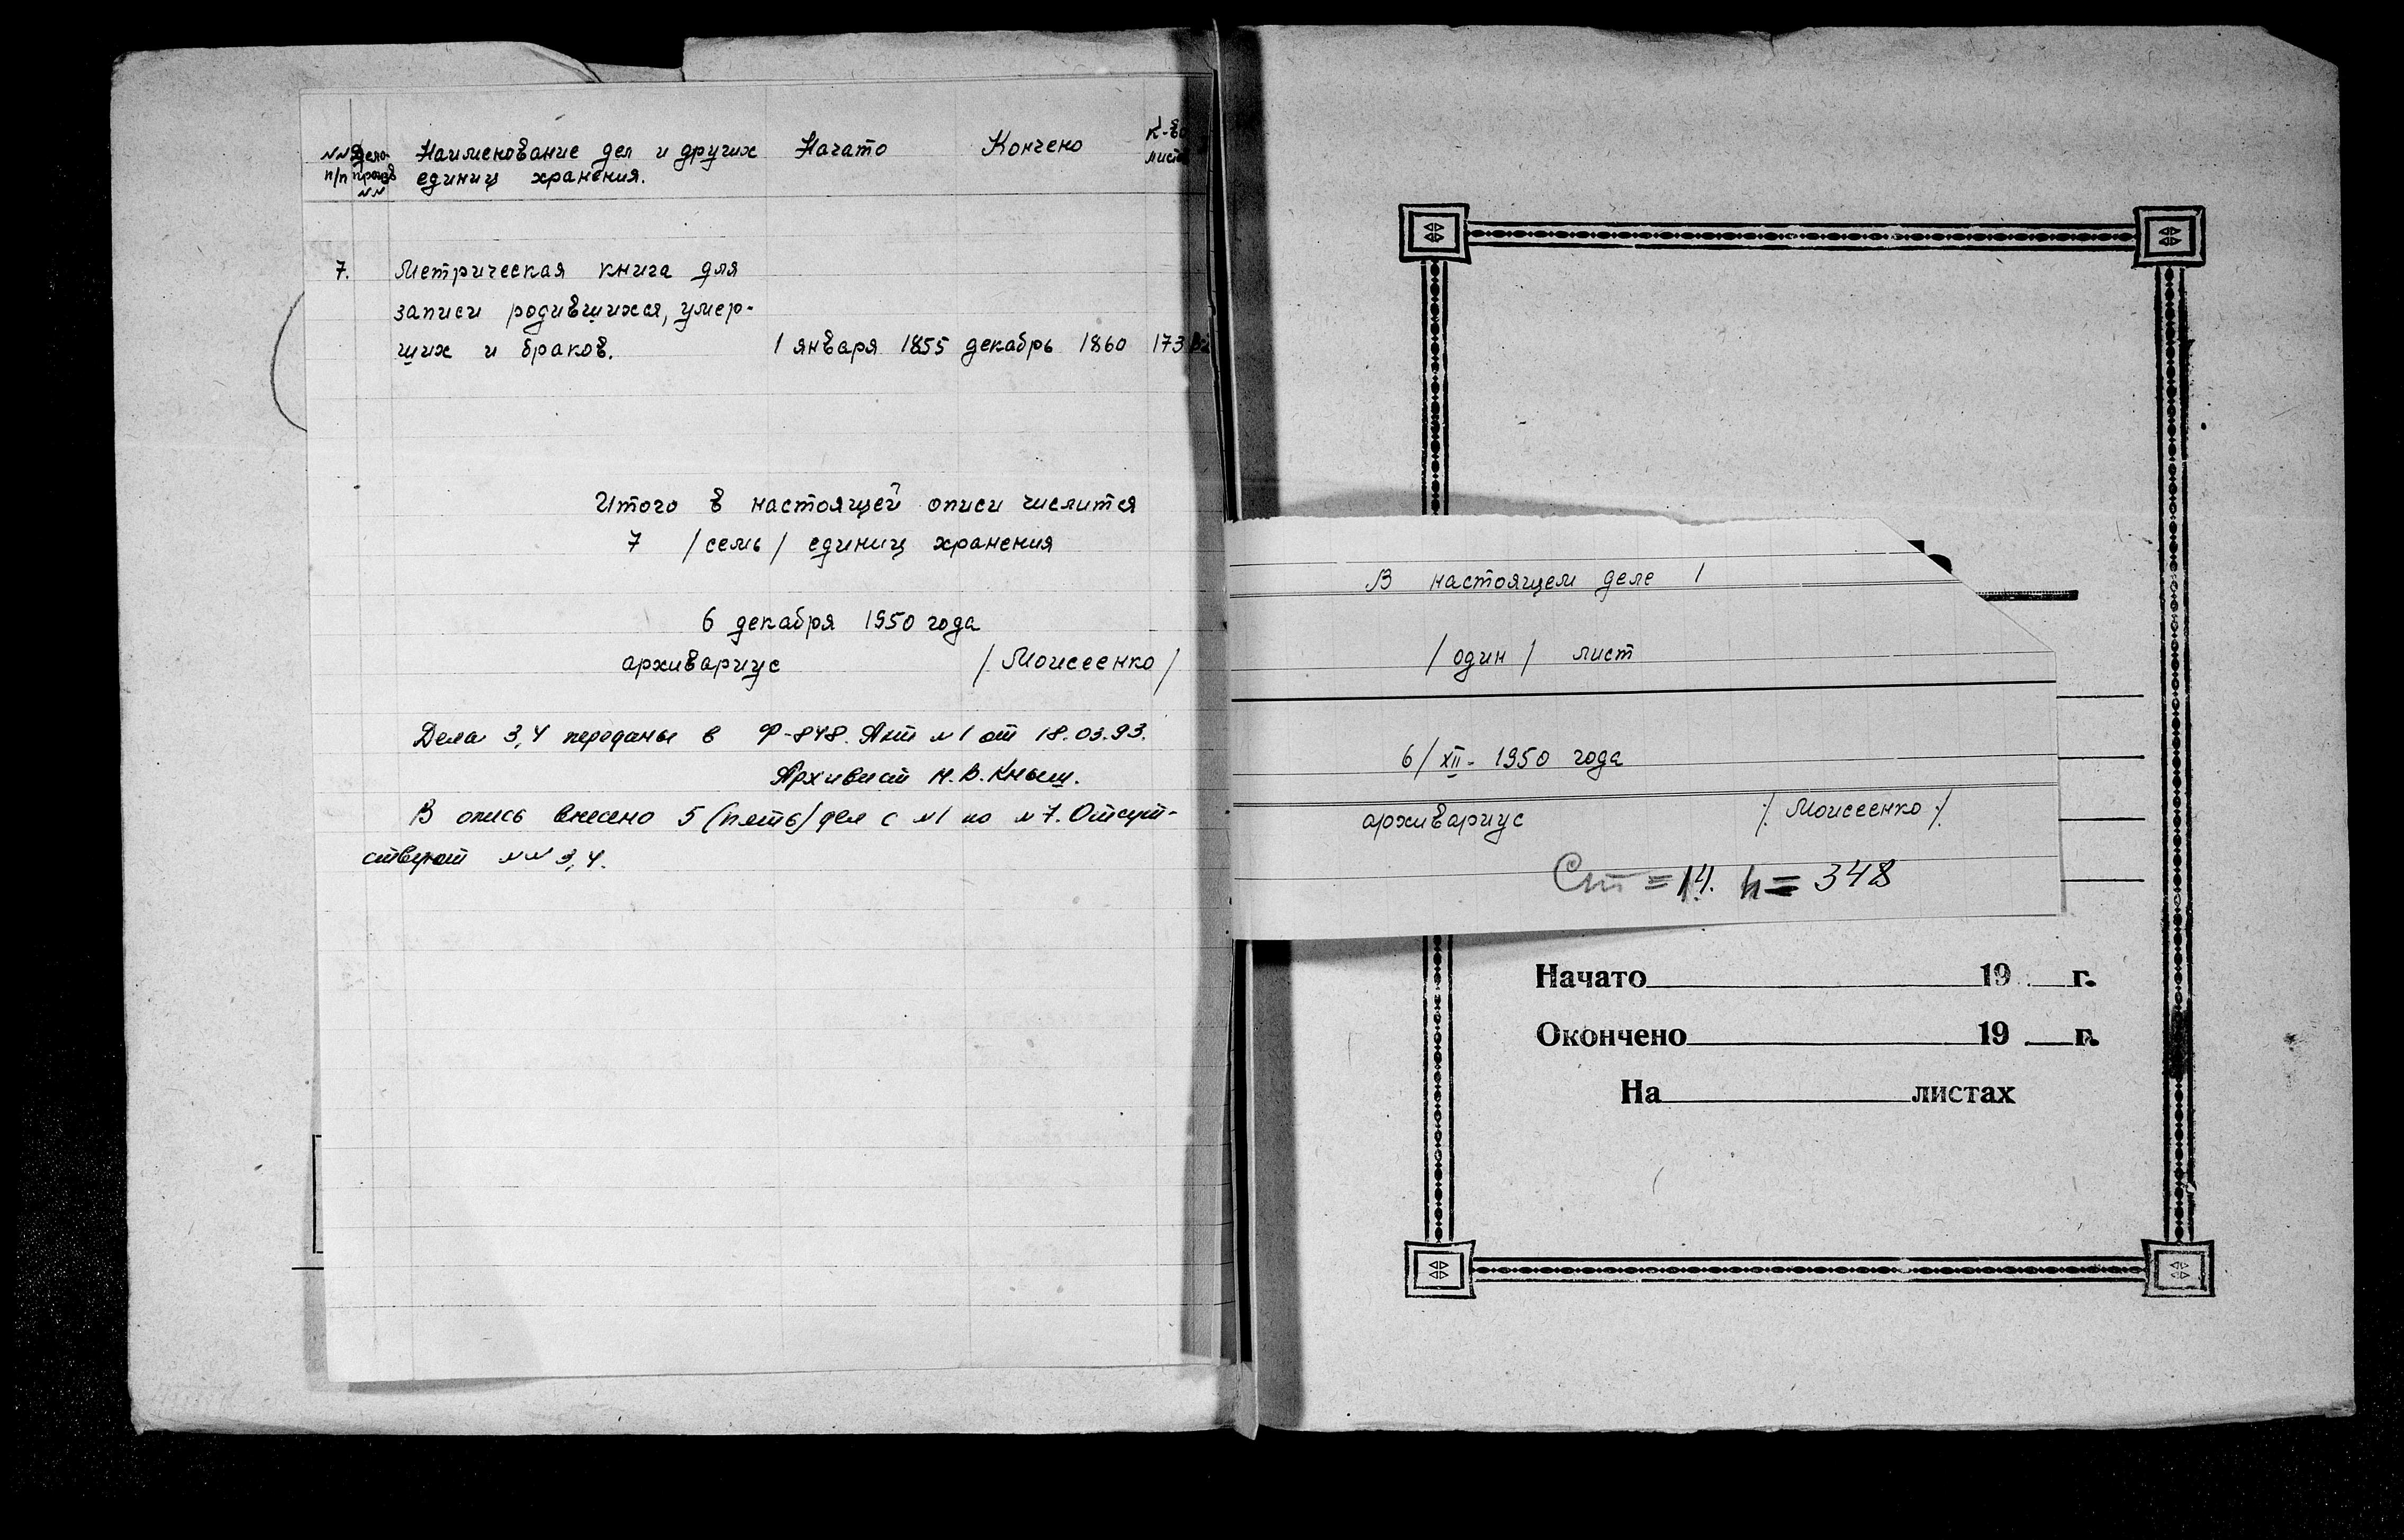 NN п/п
Дело-произв NN
Наименование дел и других
единиц хранения.
Начато
Кончено
к-во
лист
7. Метрическая книга для
записи родившихся, умер-
ших и браков. 1 января 1855 декабрь 1860 173
Итого в настоящей описи числится
7 /семь/ единиц хранения
6 декабря 1950 года
архивариус /Моисеенко/
Дела 3,4 переданы в Ф-848. Акт N1 от 18.03.93.
Архивист Н.В.Кныш.
В опись внесено 5 (пять) дел с N1 по N7. Отсут-
ствуют NN 3,4.
В настоящем деле 1
/один/ лист
6/XII- 1950 года
архивариус /. Моисеенко ./
Ст = 14. h = 348
Начато 19 г.
Окончено 19 г.
На листах